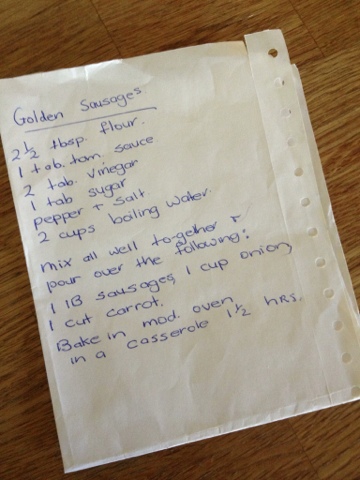 Golden Sausages
2 1/2 tbsp. flour.
1 tab. tom. sauce
2 tab. vinegar
1 tab sugar
pepper + salt.
2 cups boiling water.
mix all well together +
pour over the following:
1 lB sausages, 1 cup onion,
1 cut carrot.
Bake in mod. oven
in a casserole 1 1/2 hrs.